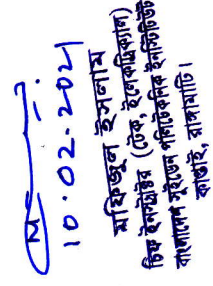 10.02.2021
মফিজুল ইসলাম
চিফ ইনস্ট্রাক্টর (টেক, ইলেকট্রিক্যাল)
বাংলাদেশ সুইডেন পলিটেকনিক ইনস্টিটিউট
কাপ্তাই, রাঙ্গামাটি।